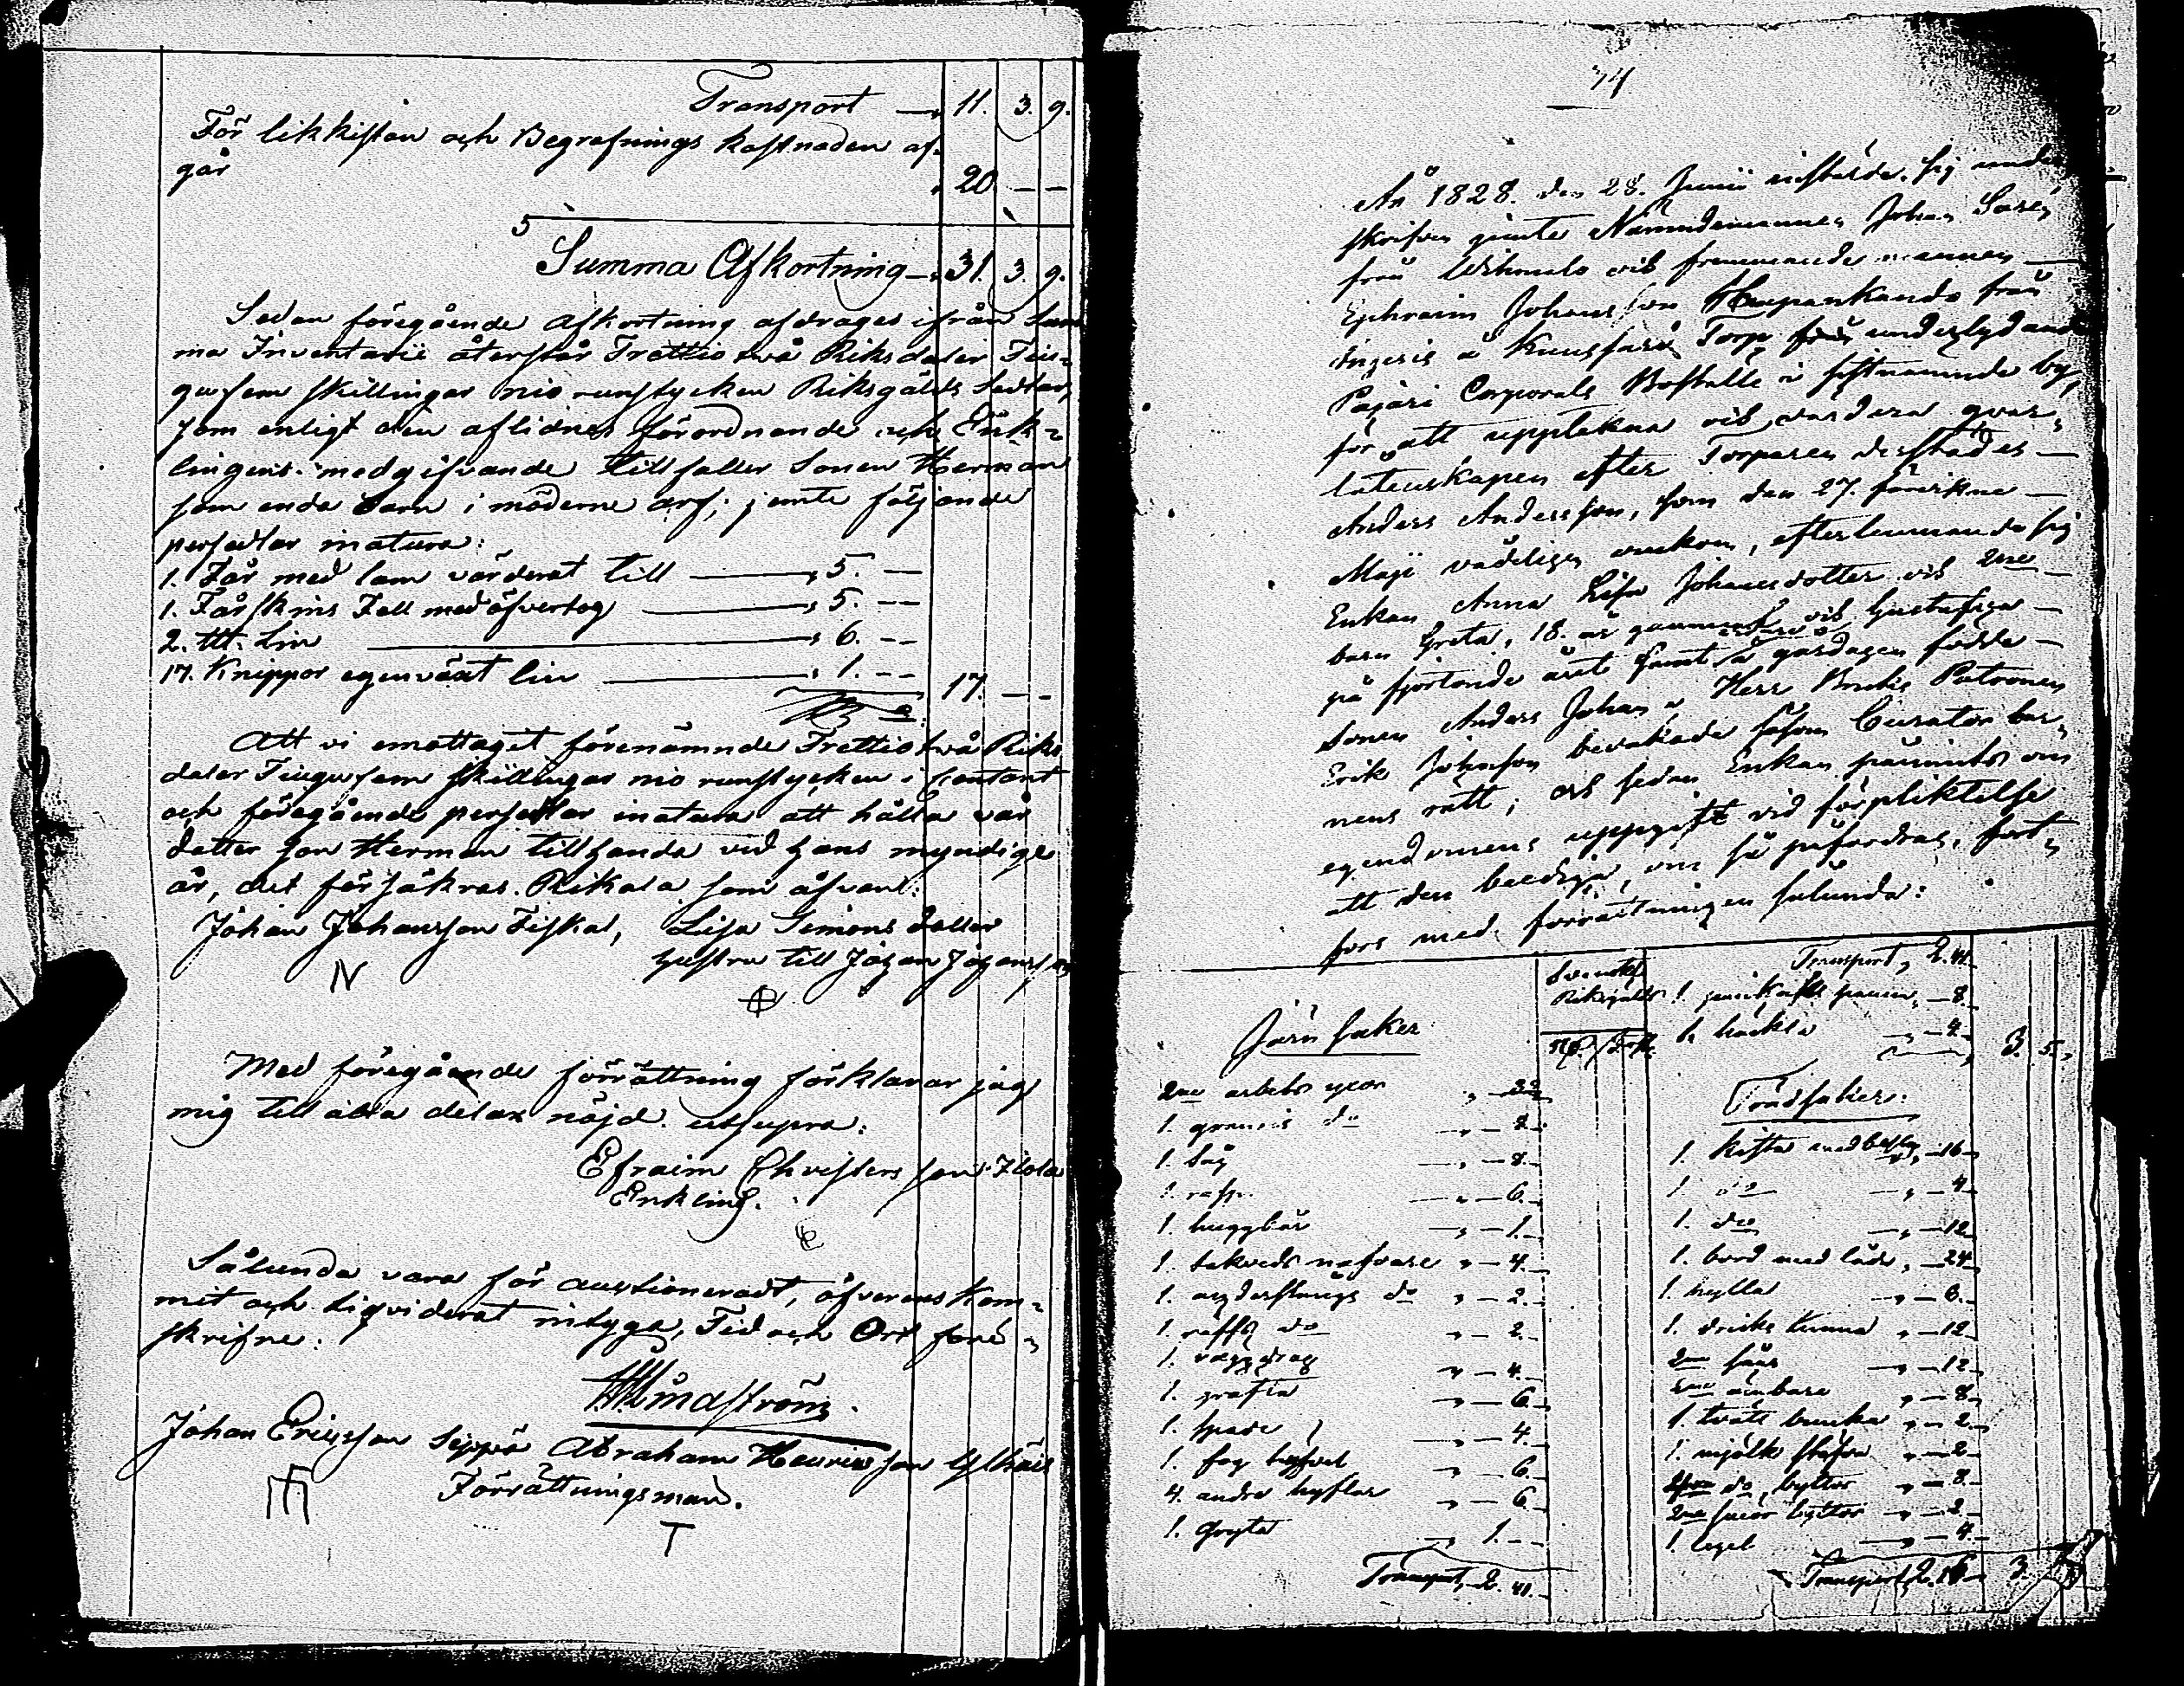 Transport — 11. 3. 9.
För likkistan och Begrafnings kostnaden af-
går " 20 — —
5
Summa Afkortning — " 31. 3. 9.
Sedan föregående afkortning afdrages ifrån Sum
ma Inventarii återstår Trettio två Riksdaler Tiu-
gufem skillingar nio runstycken Riksgälds Sedlar,
som enligt den aflidnes förordnande och Enk-
lingens medgifvande tillfaller Sonen Herman
som enda barn i möderne arf; jemte följande
persedlar in natura:
1. Får med lam värderat till — " 5. —
1. Fårskins Fäll med öfvertog — " 5. —
2. ℔ Lin — " 6. —
17. Knippor egenväxt lin — " 1. — 17. — —
Att vi emottagit förenämnde Trettio två Riks
daler Tiugufem skillingar nio runstycken i Contant
och föregående persedlar in natura att hålla vår
dotter son Herman tillhanda vid hans myndige
år, det försäkras. Rikala som ofvan:
Johan Johansson Fiskal, Lisa Simons dotter
hustru till Johan Johansson
Med föregående förrättning förklarar jag
mig till alla delar nöjd. ut supra:
Efraim Christersson Ilola
Enkling.
Sålunda vara för auctioneradt, öfverens kom-
mit och liqviderat intyga, Tid och Ort föré-
skrifne:
Lindström
Johan Ericsson Seppä Abraham Henricsson
Förrättningsmän.
74
År 1828. den 28. Junii instälde sig under
skrifven jemte Nämndemannen Johan Sarén
från
Ephraim Johansson från
å Torp underlydande
Pajari Corporals Boställe i sistnämnde by,
för att uppteckna och värdera qvar-
låtenskapen efter Torparen derstädes —
Anders Andersson, som den 27. förvikne —
Maji vådeligen omkom, efterlemnande sig
Enkan Anna Lisa Johansdotter och 2ne
barn Greta, 18. år gammal och
på fjortonde året samt å gårdagen födde —
Sonen Anders Johan, Herr Bruks Patronen
Erik Johnson bevakade såsom Curator bar-
nens rätt; och sedan Enkan påmints om
egendomens uppgift vid förpliktelse
att den beediga, om så påfordras, fort-
fors med förrättningen sålunda:
Svenskt
Riksgälds
Järn saker
2ne arbets yxor " — 32
1. d:o " — 8.
1. såg — " — 8.
1. rasp. — " — 6.
1. — " — 1.
1. takveds nafvare " — 4.
1. d:o " — 2.
1. d:o " — 2.
1. " — 4.
1. " — 6.
1. spade — " — 4.
1. fog hyfvel " — 6.
4. andra hyflar " — 6.
1. Gryta " 1. —
Transport, 2. 41.
Transport, 2. 41.
1. panna — 8.
1. häckla — " — 4. 3. 5.
Trädsaker.
1. kista med beslag " — 16
1. d:o — " — 4
1. d:o — " — 12
1. bord med låda " — 24
1. hylla — " — 6.
1. dricks kanna " — 12
2ne såar — " — 12
ämbare " — 8.
1. tvätt bunka " — 2.
1. mjölk stäfva " — 2
d:o byttor " — 8.
2ne smör byttor " — 2.
1. legel — " — 4.
Transport, 2. 16 3.